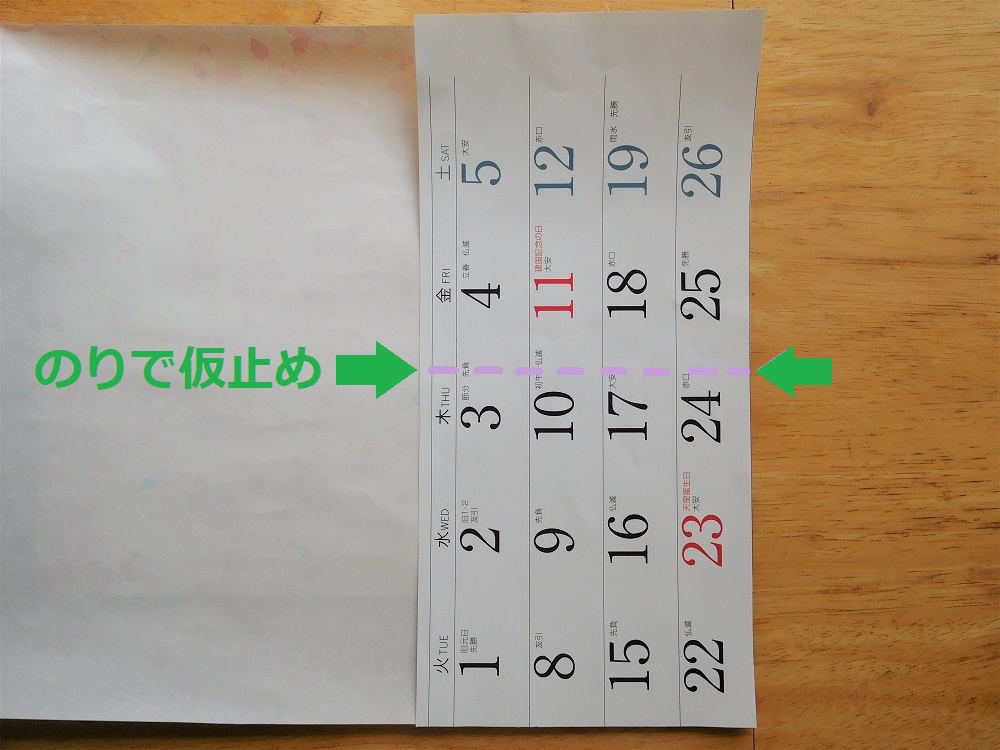 のりで仮止め
火 TUE 水 WED 木 THU 金 FRI 土 SAT
旧元日 旧1.2
先勝 友引 節分 先負 立春 仏滅 大安
1 2 3 4 5
建国記念の日
友引 先負 初午 仏滅 大安 赤口
8 9 10 11 12
先負 仏滅 大安 赤口 雨水 先勝
15 16 17 18 19
天皇誕生日
仏滅 大安 赤口 先勝 友引
22 23 24 25 26